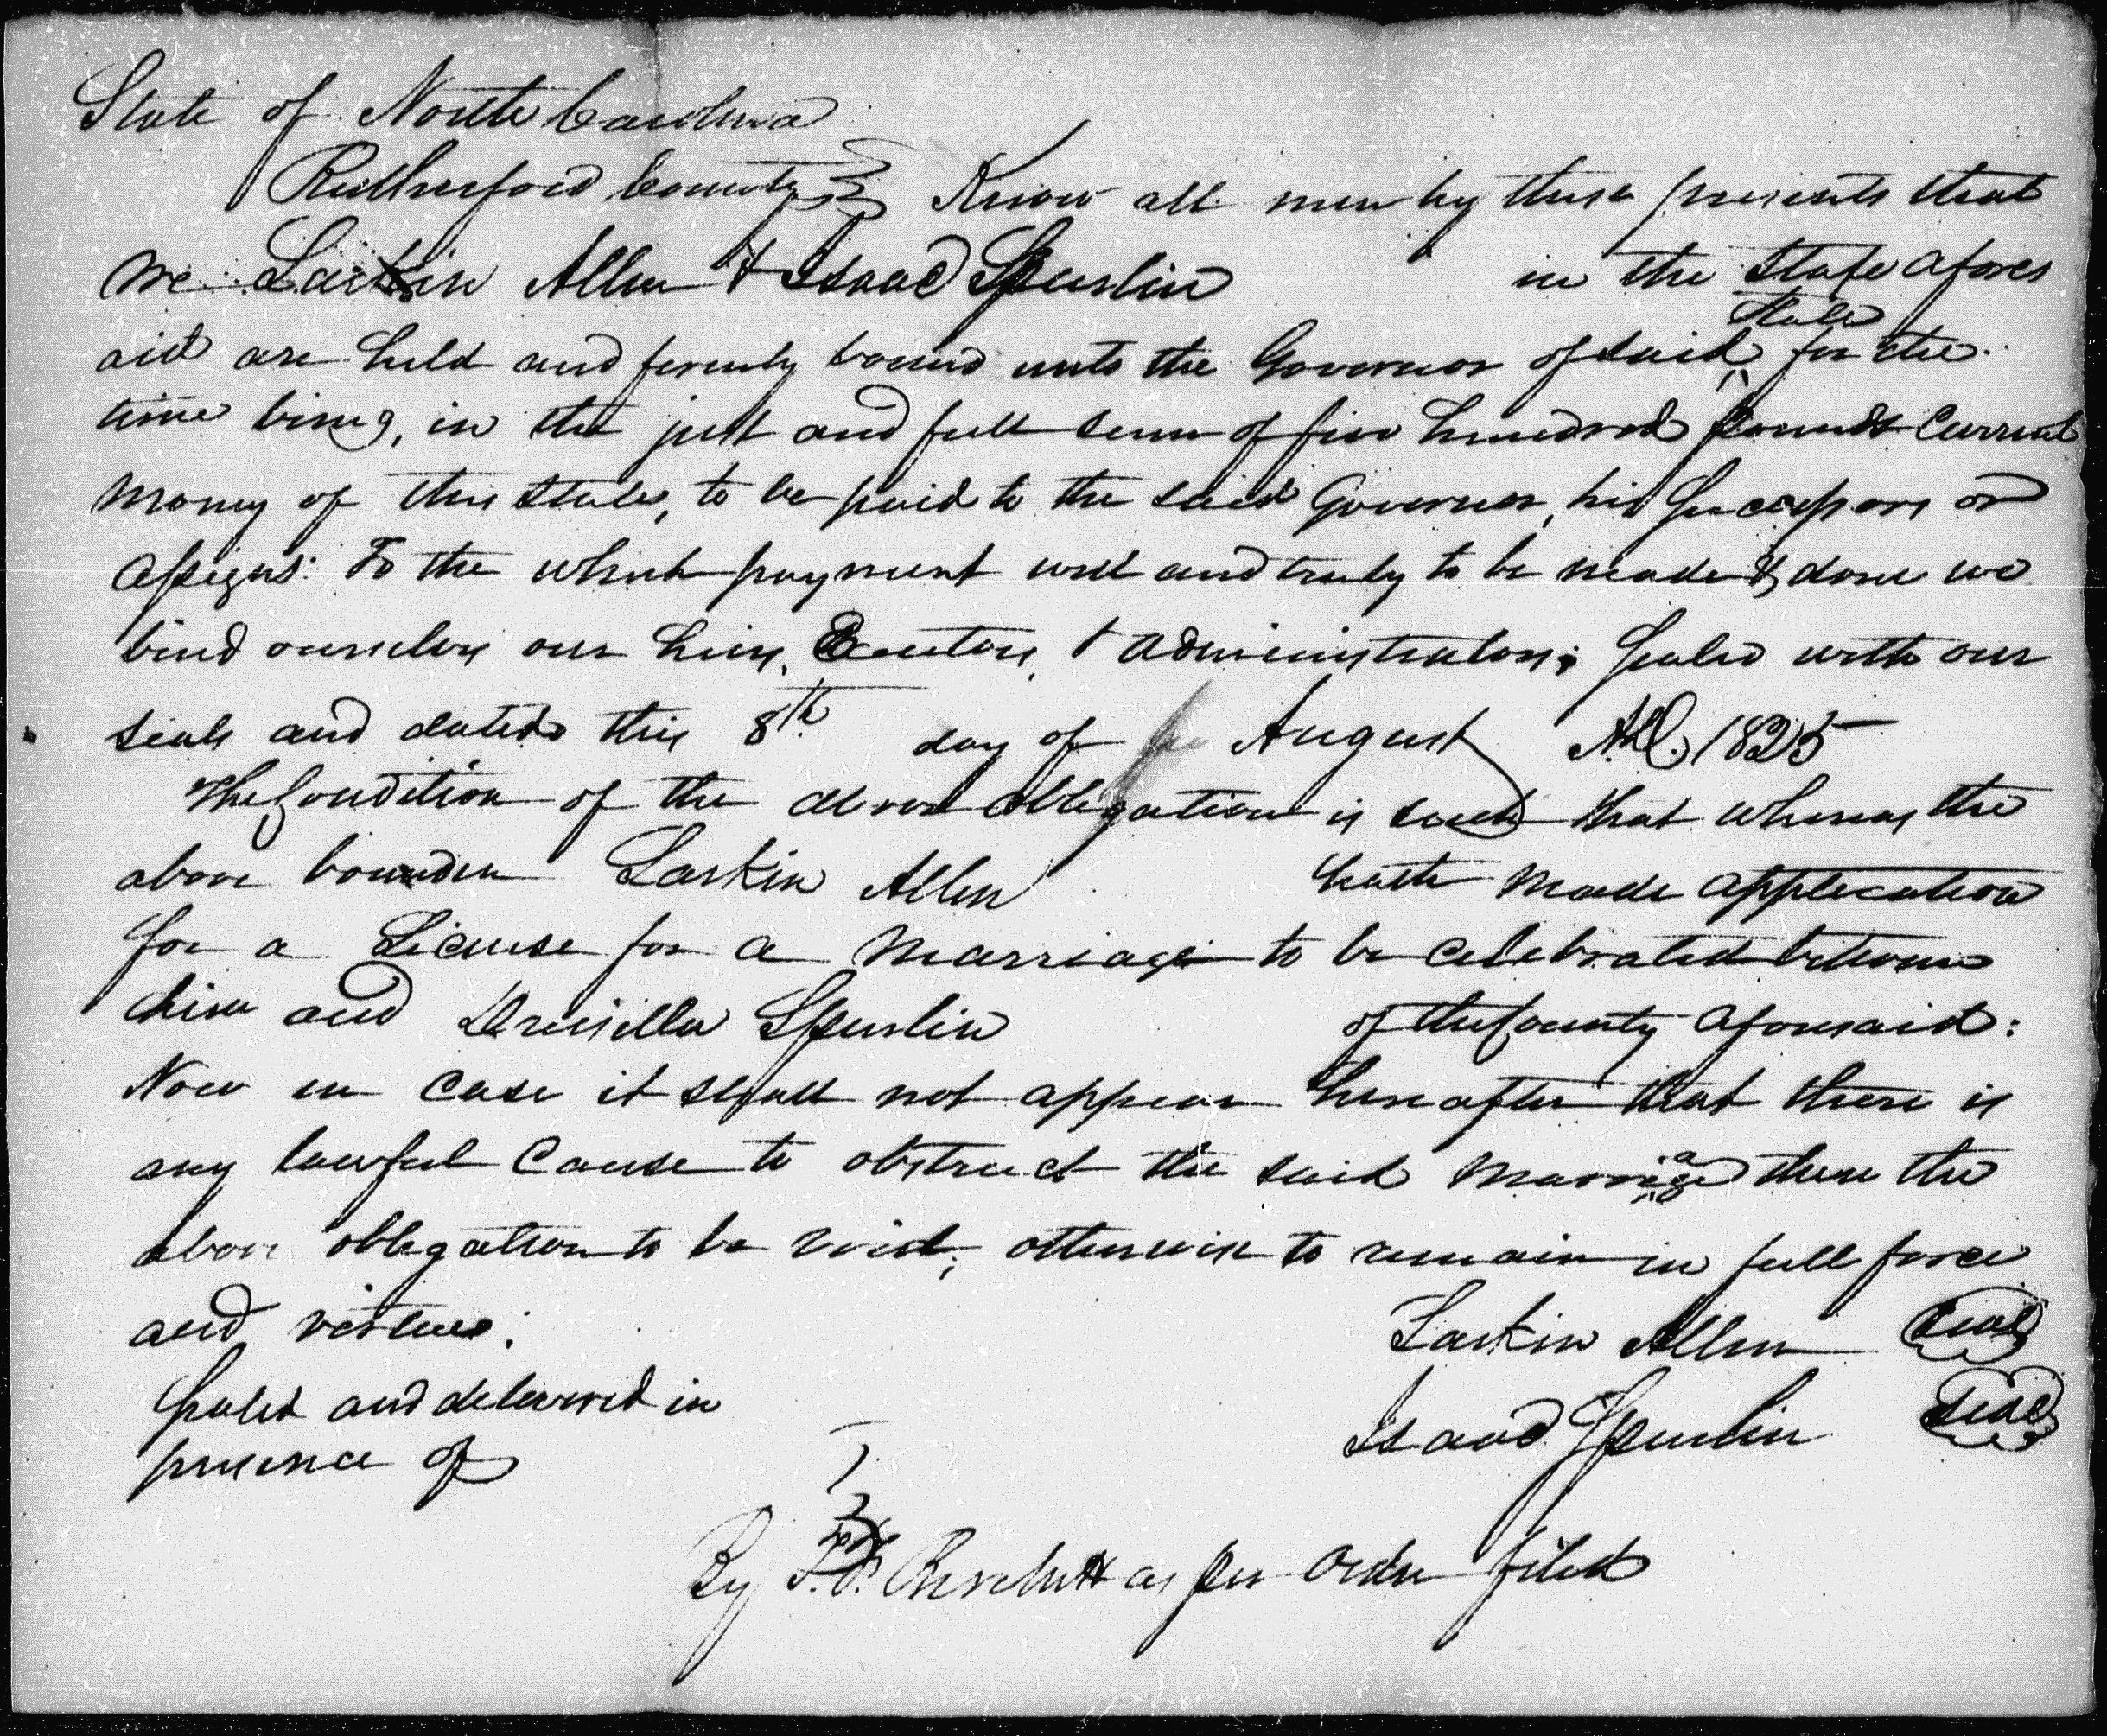 State of North Carolina
Rutherford County Know all men by these presents that
we Larkin Allen & Isaac Spurlin in the State afores
State
aid are held and firmly bound unto the Governor of said for the
time being, in the just and full sum of five hundred pounds Current
money of this State, to be paid to the said Governor, his Successors or
Assigns: To the which payment well and truly to be made & done we
bind ourselves our heirs, Executors, & administrators; Sealed with our
seals and dated this 8th day of August A.D. 1825
The Condition of the above obligation is such that whereas the
above bounden Larkin Allen hath made application
for a License for a Marriage to be celebrated between
him and Drusilla Spurlin of the County aforesaid:
Now in case it shall not appear hereafter that there is
any lawful Cause to obstruct the said Marriage then the
above obligation to be void; otherwise to remain in full force
and virtue.
Larkin Allen Seal
Sealed and delivered in
Isaac Spurlin Seal
presence of
By as per order filed